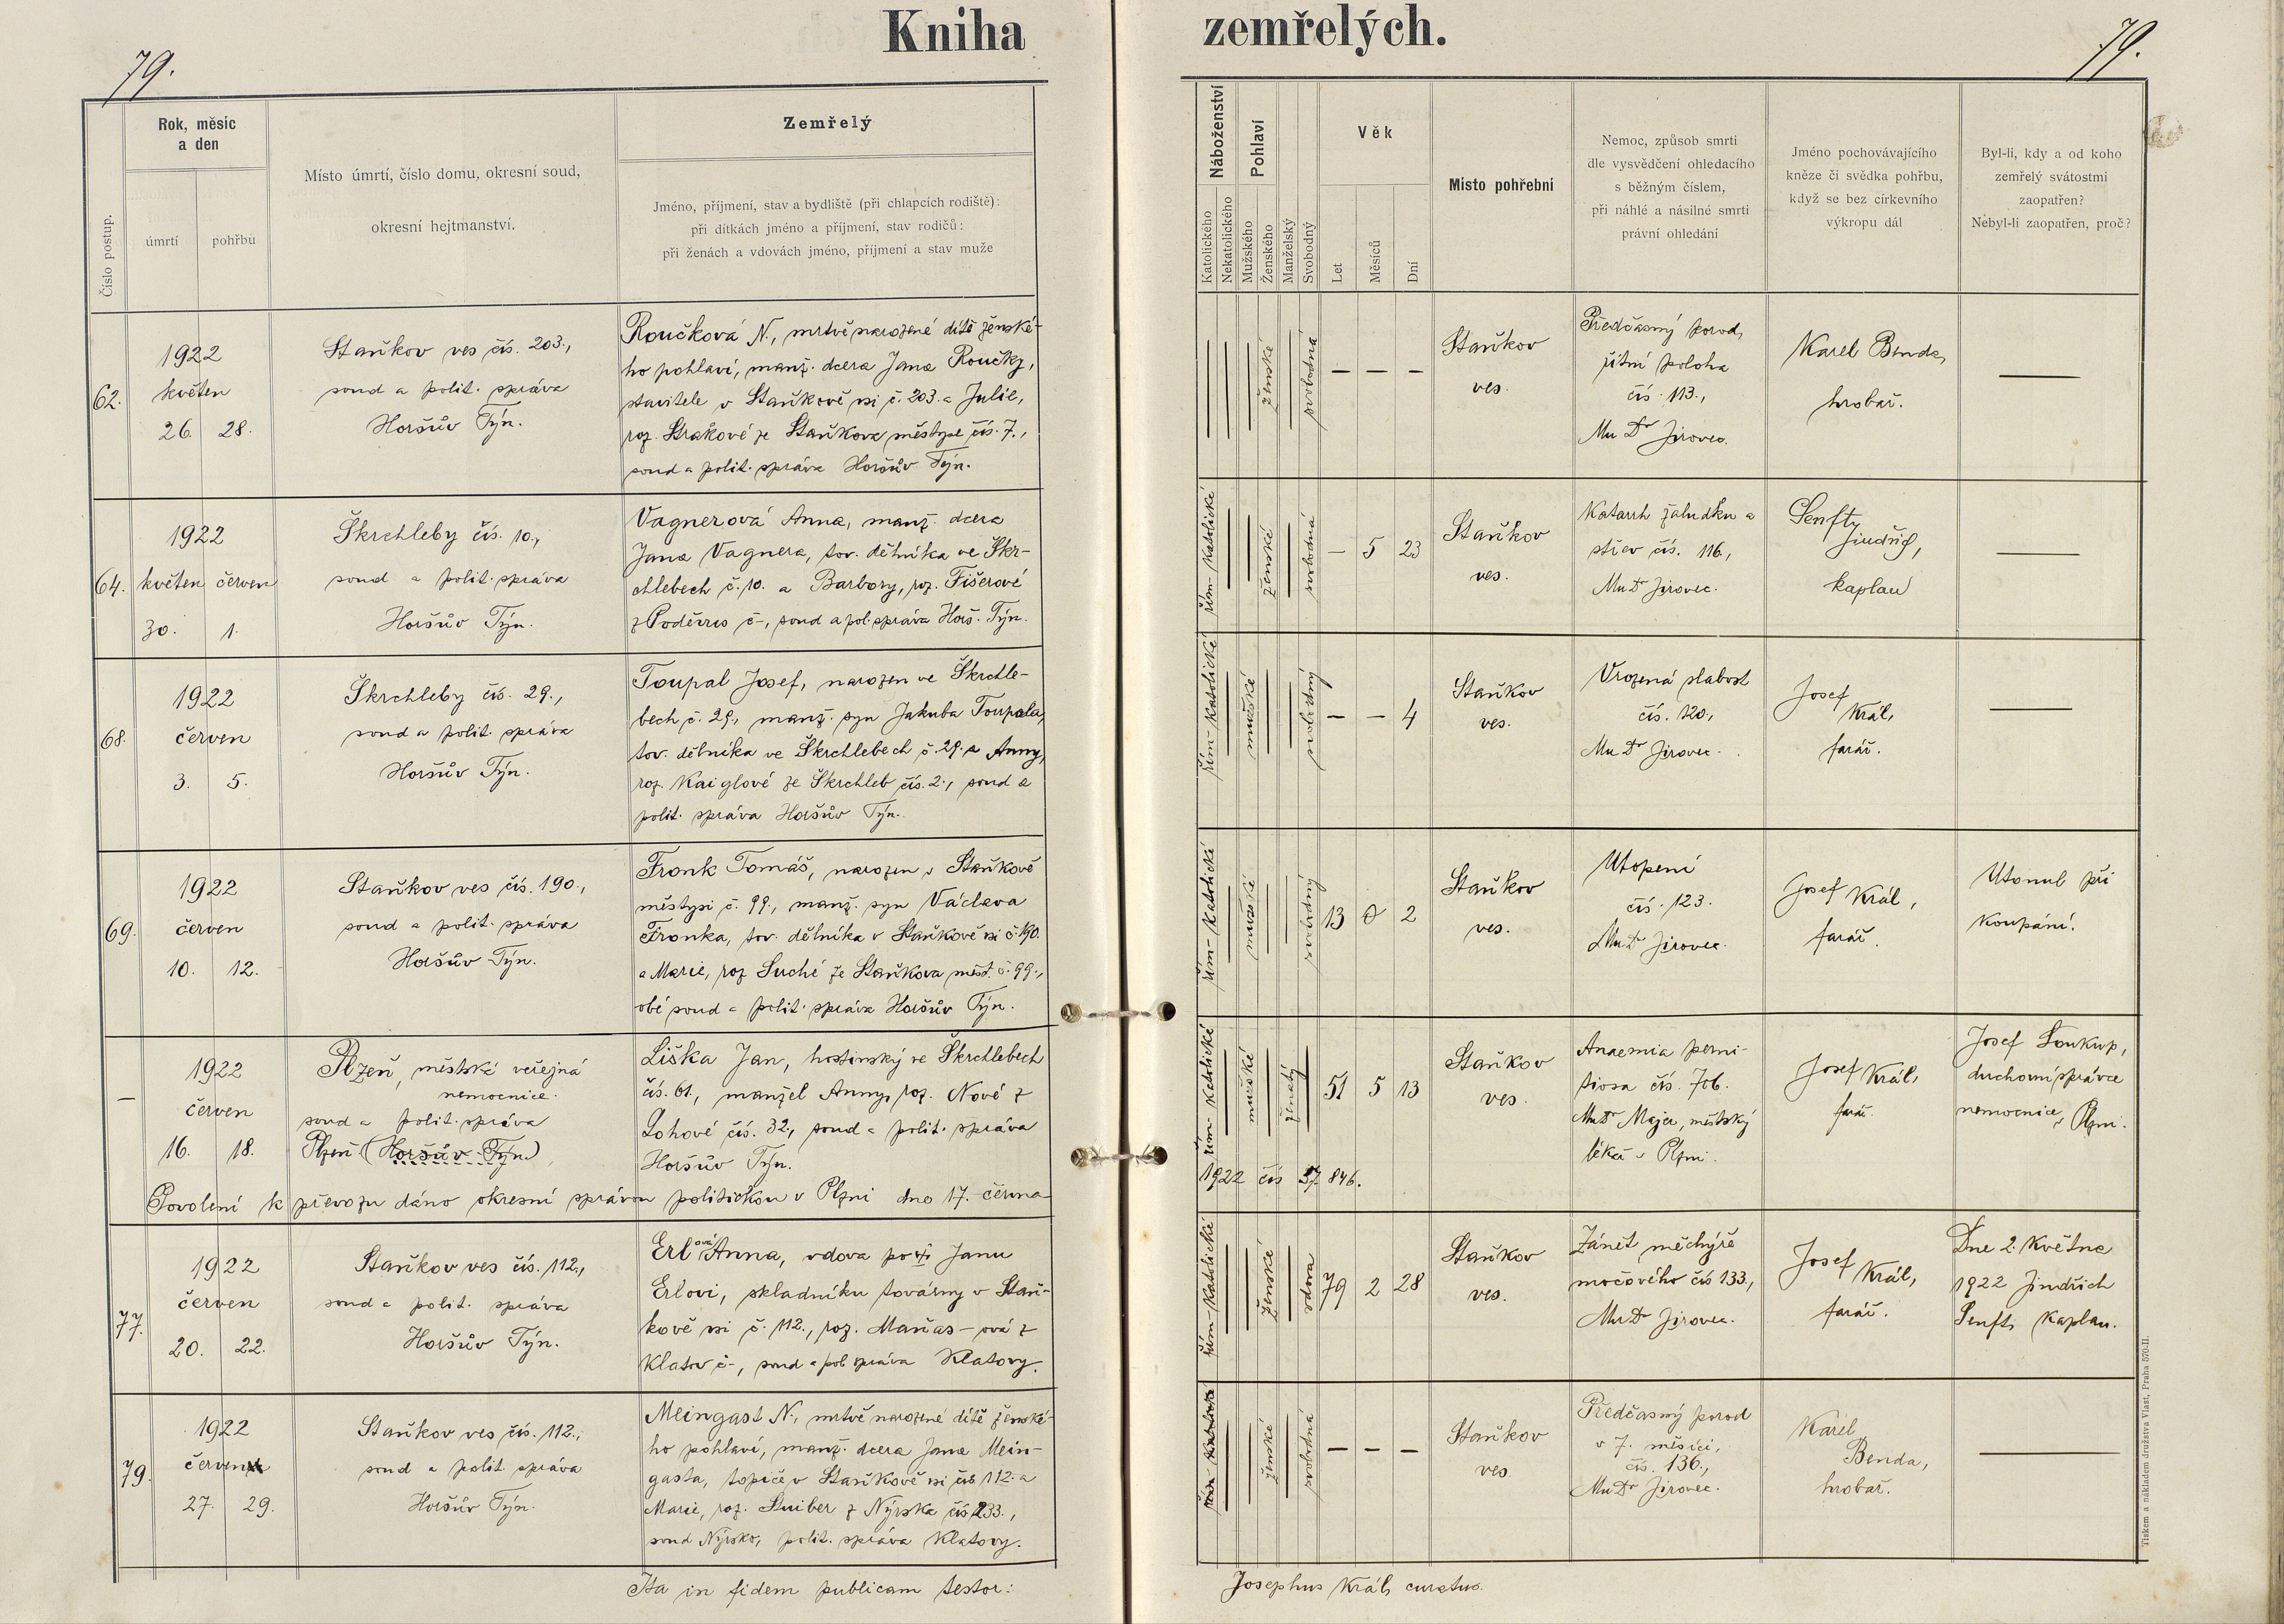 Kniha zemřelých.
79.
79.
Číslo postup.
Rok, měsíc
a den
úmrtí
pohřbu
Místo úmrtí, číslo domu, okresní soud,
okresní hejtmanství.
Zemřelý
Jméno, příjmení, stav a bydliště (při chlapcích rodiště):
při dítkách jméno a příjmení, stav rodičů:
při ženách a vdovách jméno, příjmení a stav muže
Náboženství
Katolického
Nekatolického
Pohlaví
Mužského
Ženského
Manželský
Svobodný
Věk
Let
Měsíců
Dní
Místo pohřební
Nemoc, způsob smrti
dle vysvědčení ohledacího
s běžným číslem,
při náhlé a násilné smrti
právní ohledání
Jméno pochovávajícího
kněze či svědka pohřbu,
když se bez církevního
výkropu dál
Byl-li, kdy a od koho
zemřelý svátostmi
zaopatřen?
Nebyl-li zaopatřen, proč?
62.
1922
květen
26. 28.
Staňkov ves čís. 203.,
soud a polit. správa
Horšův Týn.
Roučková N., mrtvě narozené dítě ženské-
ho pohlaví, manž. dcera Jana Roučky,
stavitele v Staňkově vsi č. 203. a Julie,
roz. Strakové ze Staňkova městyse čís. 7.,
soud a polit. správa Horšův Týn.
ženské
svobodná
— — —
Staňkov
ves.
Předčasný porod,
řitní poloha
čís. 113.,
MuDr Jirovec.
Karel Benda,
hrobař.
—
64.
1922
květen červen
30. 1.
Škrchleby čís. 10.,
soud a polit. správa
Horšův Týn.
Vagnerová Anna, manž. dcera
Jana Vagnera, tov. dělníka ve Škr-
chlebech č. 10. a Barbory, roz. Fišerové
z Poděvrs č -, soud a pol. správa Horš. Týn.
řím. katolické
ženské
svobodná
— 5 23
Staňkov
ves.
Katarrh žaludku a
střev čís. 116.,
MuDr Jirovec.
Senft
Jindřich,
kaplan
—
68.
1922
červen
3. 5.
Škrchleby čís. 29.,
soud a polit. správa
Horšův Týn.
Toupal Josef, narozen ve Škrchle-
bech č. 29., manž. syn Jakuba Toupala,
tov. dělníka ve Škrchlebech č. 29. a Anny,
roz. Kaiglové ze Škrchleb čís. 2., soud a
polit. správa Horšův Týn.
řím-katolické
mužské
svobodný
— — 4
Staňkov
ves.
Vrozená slabost
čís. 120.,
MuDr Jirovec.
Josef
Král,
farář.
—
69.
1922
červen
10. 12.
Staňkov ves čís. 190.,
soud a polit. správa
Horšův Týn.
Fronk Tomáš, narozen v Staňkově
městysi č. 99., manž. syn Václava
Fronka, tov. dělníka v Staňkově vsi č. 190.
a Marie, roz. Suché ze Staňkova měst. č. 99.,
obé soud a polit. správa Horšův Týn.
řím-katolické
mužské
svobodný
13 0 2
Staňkov
ves.
Utopení
čís. 123.
MuDr Jirovec.
Josef Král,
farář.
Utonul při
koupání.
—
1922
červen
16. 18.
Plzeň, městská veřejná
nemocnice.
soud a polit. správa
Plzeň (Horšův Týn)
Liška Jan, hostinský ve Škrchlebech
čís. 61., manžel Anny, roz. Nové z
Lohové čís. 32., soud a polit. správa
Horšův Týn.
řím-katolické
mužské
ženatý
51 5 13
Staňkov
ves.
Anaemia perni-
tiosa čís. 706.
MuDr Majer, městský
lékař v Plzni.
Josef Král,
farář.
Josef Soukup,
duchovní správce
nemocnice v Plzni.
Povolení k převozu dáno okresní správou politickou v Plzni dne 17. června
1922 čís 37.846.
77.
1922
červen
20. 22.
Staňkov ves čís. 112.,
soud a polit. správa
Horšův Týn.
Erlová Anna, vdova po † Janu
Erlovi, skladníku továrny v Staň-
kově vsi č. 112., roz. Maňas-ová z
Klatov č -, soud a pol. správa Klatovy.
řím-katolické
ženské
vdova
79 2 28
Staňkov
ves.
Zánět měchýře
močového čís 133.,
MuDr Jirovec.
Josef
Král,
farář.
Dne 2. května
1922 Jindřich
Senft, kaplan.
79.
1922
červen
27. 29.
Staňkov ves čís. 112.,
soud a polit. správa
Horšův Týn.
Meingast N., mrtvě narozené dítě ženské-
ho pohlaví, manž. dcera Jana Mein-
gasta, topiče v Staňkově vsi čís 112. a
Marie, roz. Suiber z Nýrska čís 233.,
soud Nýrsko, polit. správa Klatovy.
ženské
svobodná
— — —
Staňkov
ves.
Předčasný porod
v 7. měsíci,
čís. 136.,
MuDr Jirovec.
Karel
Benda,
hrobař.
—
Ita in fidem publicam testor:
Josephus Král, curatus.
Tiskem a nákladem družstva Vlast, Praha 570-II.